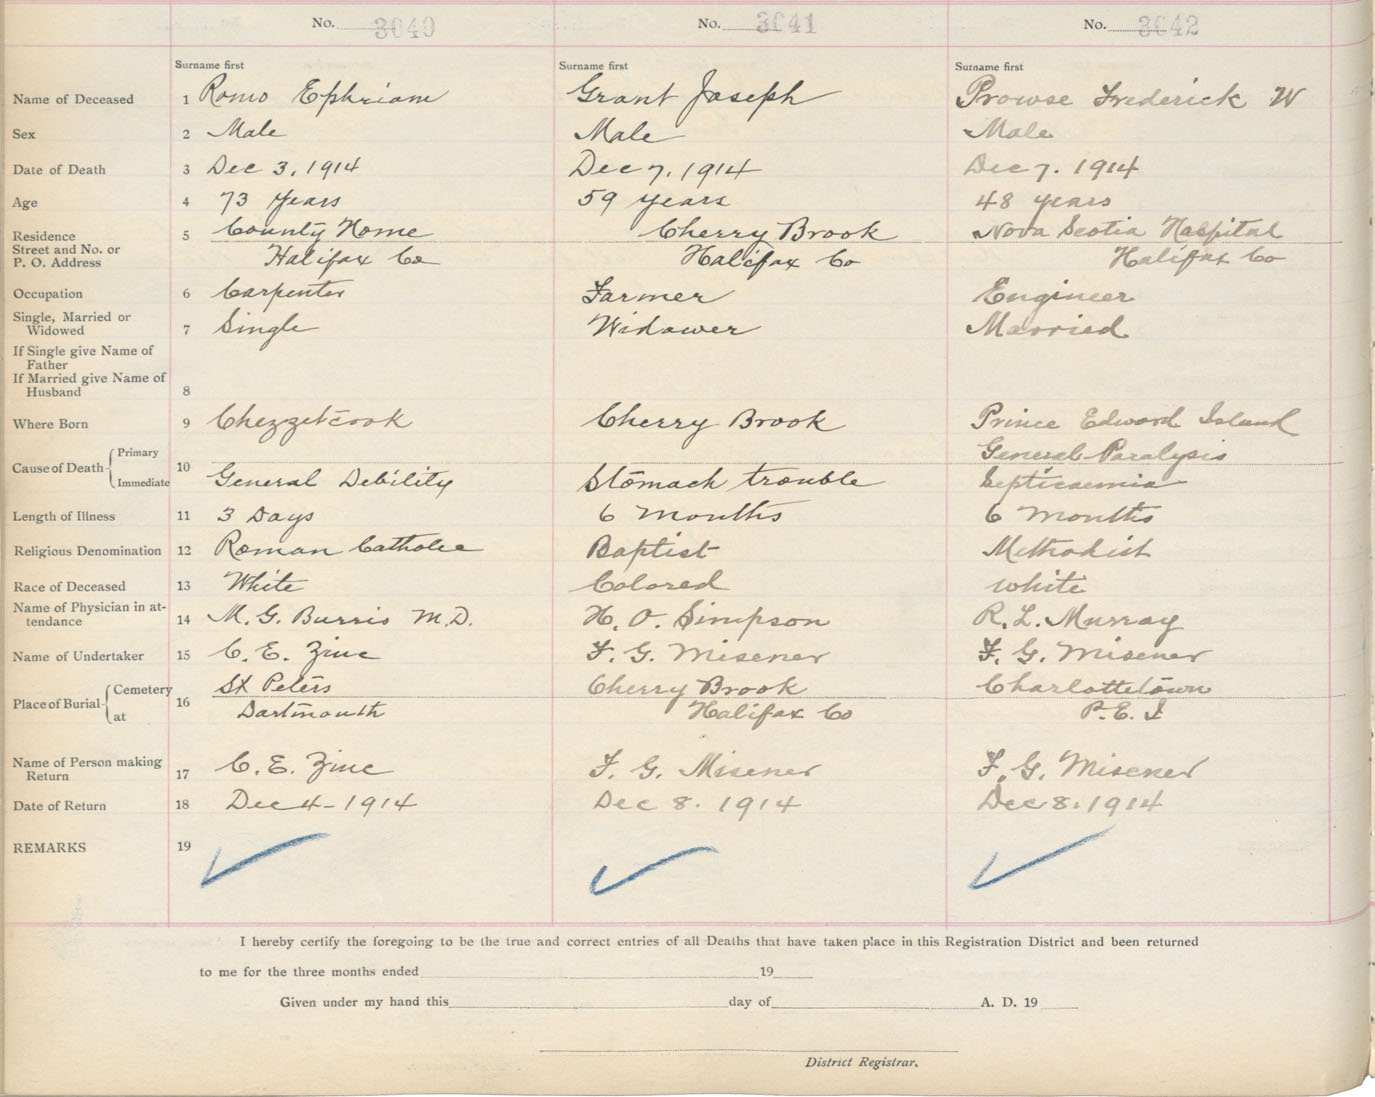 No. 3040 No. 3041 No. 3042
Surname first Surname first Surname first
Name of Deceased 1 Romo Ephriam Grant Joseph Prowse Frederick W
Sex 2 Male Male Male
Date of Death 3 Dec 3, 1914 Dec 7, 1914 Dec 7. 1914
Age 4 73 years 59 years 48 years
Residence 5 County Home Cherry Brook Nova Scotia Hospital
Street and No. or
P. O. Address Halifax Co Halifax Co Halifax Co
Occupation 6 Carpenter Farmer Engineer
Single, Married or
Widowed 7 Single Widower Married
If Single give Name of
Father
If Married give Name of
Husband 8
Where Born 9 Chezzetcook Cherry Brook Prince Edward Island
Cause of Death Primary 10 General Paralysis
Immediate General Debility Stomach trouble Septicaemia
Length of Illness 11 3 Days 6 months 6 months
Religious Denomination 12 Roman Catholic Baptist Methodist
Race of Deceased 13 White Colored white
Name of Physician in at-
tendance 14 M. G. Burris M.D. H. O. Simpson R. L. Murray
Name of Undertaker 15 C. E. Zinc F. G. Misener F. G. Misener
Place of Burial Cemetery 16 St Peters Cherry Brook Charlottetown
at Dartmouth Halifax Co P.E.I
Name of Person making
Return 17 C. E. Zinc F. G. Misener F. G. Misener
Date of Return 18 Dec 4-1914 Dec 8. 1914 Dec 8. 1914
REMARKS 19
I hereby certify the foregoing to be the true and correct entries of all Deaths that have taken place in this Registration District and been returned
to me for the three months ended 19
Given under my hand this day of A. D. 19
District Registrar.